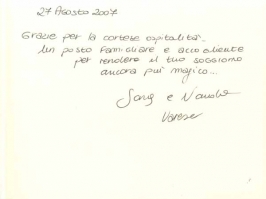 27 Agosto 2007
Grazie per la cortese ospitalità.
Un posto famigliare e accogliente
per rendere il tuo soggiorno
ancora più magico...
Sara e
Varese